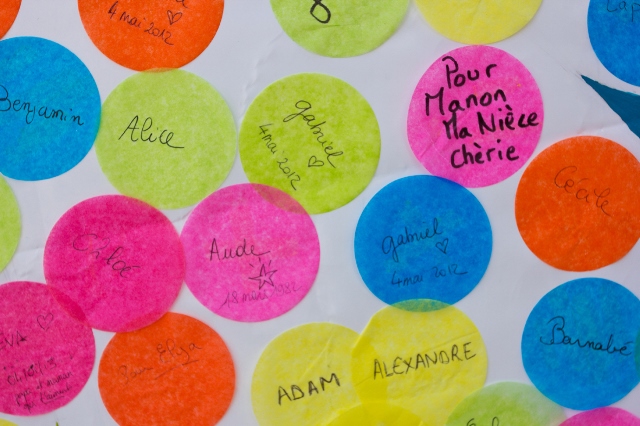 4 mai 2012
8
Benjamin
Alice
gabriel
4 mai 2012
Pour
Manon
Ma Nièce
Chèrie
Cécile
Chloé
Aude
gabriel
4 mai 2012
Barnabé
ADAM
ALEXANDRE